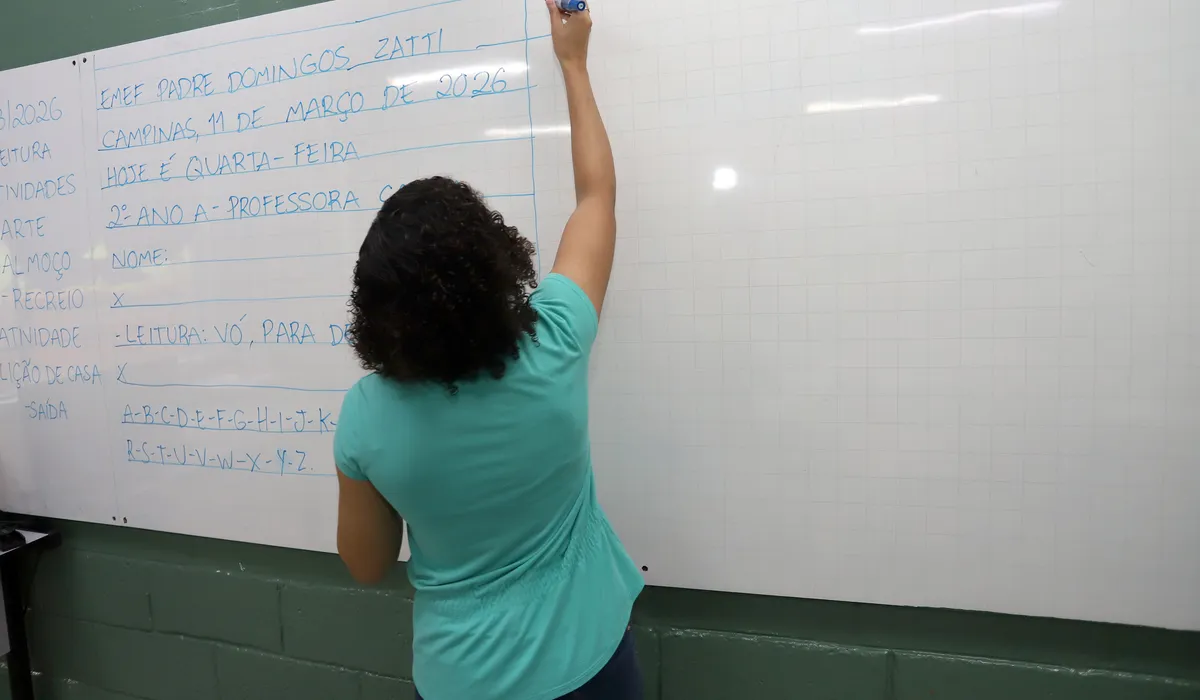 3/2026
EITURA
TIVIDADES
ARTE
ALMOÇO
-RECREIO
ATIVIDADE
LIÇÃO DE CASA
-SAÍDA
EMEF PADRE DOMINGOS ZATTI
CAMPINAS, 11 DE MARÇO DE 2026
HOJE É QUARTA-FEIRA
2º ANO A - PROFESSORA
NOME:
X
-LEITURA: VÓ, PARA DE
X
A-B-C-D-E-F-G-H-I-J-K-
R-S-T-U-V-W-X-Y-Z.